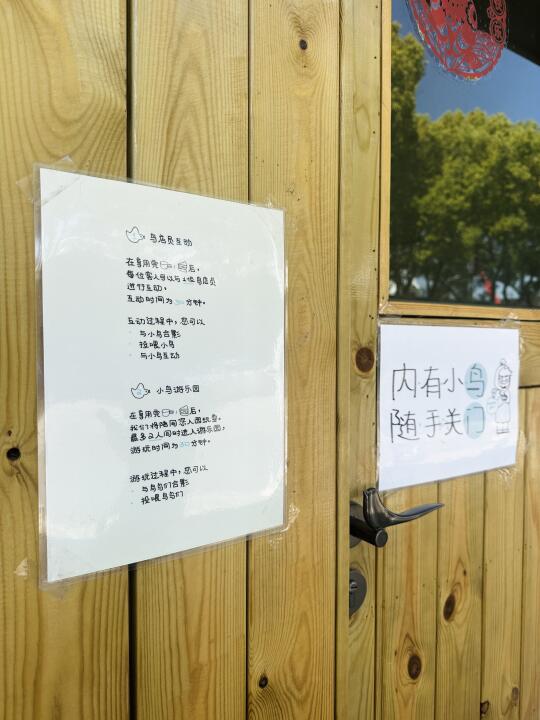 鸟店员互动
在享用完 后，
每位客人可以与1位鸟店员
进行互动。
互动时间为30分钟。
互动过程中，您可以
· 与小鸟合影
· 投喂小鸟
· 与小鸟互动
小鸟游乐园
在享用完 后，
我们将陪同您入园玩耍。
最多2人同时进入游乐园，
游玩时间为30分钟。
游玩过程中，您可以
· 与鸟鸟们合影
· 投喂鸟鸟们
内有小鸟
随手关门